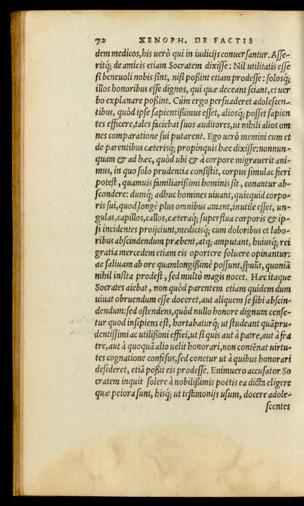 72 XENOPH. DE FACTIS
dem medicos, his uerò qui in iudicijs conuersantur. Asse-
ritq́; de amicis etiam Socratem dixisse: Nil utilitatis esse
si beneuoli nobis sint, nisi poßint etiam prodesse: solosq́;
illos honoribus esse dignos, qui quæ deceant sciant, et uer
bo explanare poßint. Cùm ergo persuaderet adolescen-
tibus, quòd ipse sapientißimus esset, aliosq́; posset sapien
tes efficere, tales faciebat suos auditores, ut nihili alios om
nes comparatione sui putarent. Ego uerò memini eum et
de parentibus cæterisq́; propinquis hæc dixisse: nonnun-
quam & ad hæc, quòd ubi è corpore migrauerit ani-
mus, in quo solo prudentia consistit, corpus simulac fieri
potest, quamuis familiarißimi hominis sit, conantur ab-
scondere: dumq́; adhuc homines uiuant, quicquid corpo-
ris sui, quod longè plus omnibus amant, inutile esset, un-
gulas, capillos, callos, cæteraq́; superflua corporis & ip-
si incidentes proijciunt, medicisq́; cum doloribus et labo-
ribus abscindendum præbent, atq; amputant, huiusq́; rei
gratia mercedem etiam eis oportere soluere opinantur:
ac saliuam ab ore quamlongißimè possunt, spuūt, quoniā
nihil insita prodest, sed multò magis nocet. Hæc itaque
Socrates aiebat, non quòd parentem etiam quidem dum
uiuat obruendum esse doceret, aut aliquem se sibi abscin-
dendum: sed ostendens, quòd nullo honore dignum cense-
tur quod insipiens est, hortabaturq́; ut studeant quàm pru-
dentißimi ac utilißimi effici, ut si quis aut à patre, aut à fra
tre, aut à quoquā alio uelit honorari, non contēnat uirtu-
tes cognatione confisus, sed conetur ut à quibus honorari
desyderet, etiā poßit eis prodesse. Enimuero accusator So
cratem inquit solere à nobilißimis poëtis ea dicta eligere
quæ peiora sunt, hisq́; ut testimonijs usum, docere adole-
scentes